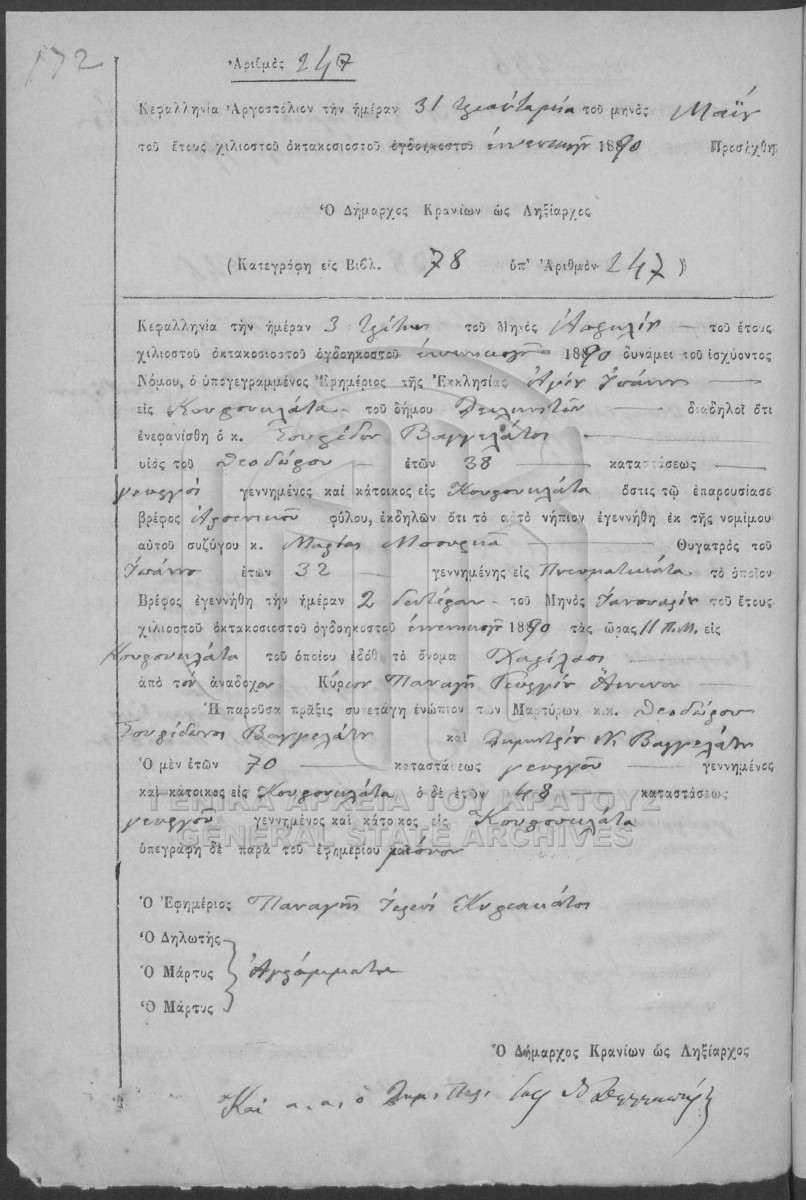 172
Ἀριθμὸς 247
Κεφαλληνία Ἀργοστόλιον τὴν ἡμέραν 31 τριάντα μία τοῦ μηνὸς Μαΐου
τοῦ ἔτους χιλιοστοῦ ὀκτακοσιοστοῦ ὀγδοηκοστοῦ ἐννενηκοστοῦ 1890 Προσήχθη
Ὁ Δήμαρχος Κρανίων ὡς Ληξίαρχος
(Κατεγράφη εἰς Βιβλ. 78 ὑπ' Ἀριθμὸν 247)
Κεφαλληνία τὴν ἡμέραν 3 τρίτην τοῦ Μηνὸς Ἀπριλίου τοῦ ἔτους
χιλιοστοῦ ὀκτακοσιοστοῦ ὀγδοηκοστοῦ ἐννενηκοστοῦ 1890 δυνάμει τοῦ ἰσχύοντος
Νόμου, ὁ ὑπογεγραμμένος Ἐφημέριος τῆς Ἐκκλησίας Ἁγίου Ἰωάννου
εἰς Κουρουκλάτα τοῦ δήμου διαδηλοῖ ὅτι
ἐνεφανίσθη ὁ κ. Σπυρίδων Βαγγελάτος
υἱὸς τοῦ Θεοδώρου ἐτῶν 38 καταστάσεως
γεωργὸς γεννημένος καὶ κάτοικος εἰς Κουρουκλάτα ὅστις τῷ ἐπαρουσίασε
βρέφος Ἀρσενικοῦ φύλου, ἐκδηλῶν ὅτι τὸ αὐτὸ νήπιον ἐγεννήθη ἐκ τῆς νομίμου
αὐτοῦ συζύγου κ. Μαρίας Θυγατρὸς τοῦ
Ἰωάννου ἐτῶν 32 γεννημένης εἰς Πνευματικάτα τὸ ὁποῖον
Βρέφος ἐγεννήθη τὴν ἡμέραν 2 δευτέραν τοῦ Μηνὸς Ἰανουαρίου τοῦ ἔτους
χιλιοστοῦ ὀκτακοσιοστοῦ ὀγδοηκοστοῦ ἐννενηκοστοῦ 1890 τὰς ὥρας 11 Π.Μ. εἰς
Κουρουκλάτα τοῦ ὁποίου ἐδόθη τὸ ὄνομα Χαρίλαος
ἀπὸ τὸν ἀνάδοχον Κύριον Παναγῆ Γεωργίου
Ἡ παροῦσα πρᾶξις συνετάγη ἐνώπιον τῶν Μαρτύρων κ.κ. Θεοδώρου
Σπυρίδωνος Βαγγελάτου καὶ Δημητρίου Ν. Βαγγελάτου
Ὁ μὲν ἐτῶν 70 καταστάσεως γεωργοῦ γεννημένος
καὶ κάτοικος εἰς Κουρουκλάτα ὁ δὲ ἐτῶν 48 καταστάσεως
γεωργοῦ γεννημένος καὶ κάτοικος εἰς Κουρουκλάτα
ὑπεγράφη δὲ παρὰ τοῦ ἐφημερίου μόνον
ΓΕΝΙΚΑ ΑΡΧΕΙΑ ΤΟΥ ΚΡΑΤΟΥΣ
GENERAL STATE ARCHIVES
Ὁ Ἐφημέριος Παναγῆς Ἱερεὺς Κυριακάτος
Ὁ Δηλωτὴς
Ὁ Μάρτυς Ἀγράμματοι
Ὁ Μάρτυς
Ὁ Δήμαρχος Κρανίων ὡς Ληξίαρχος
Καὶ α. α. ὁ Δημ. Παρ.